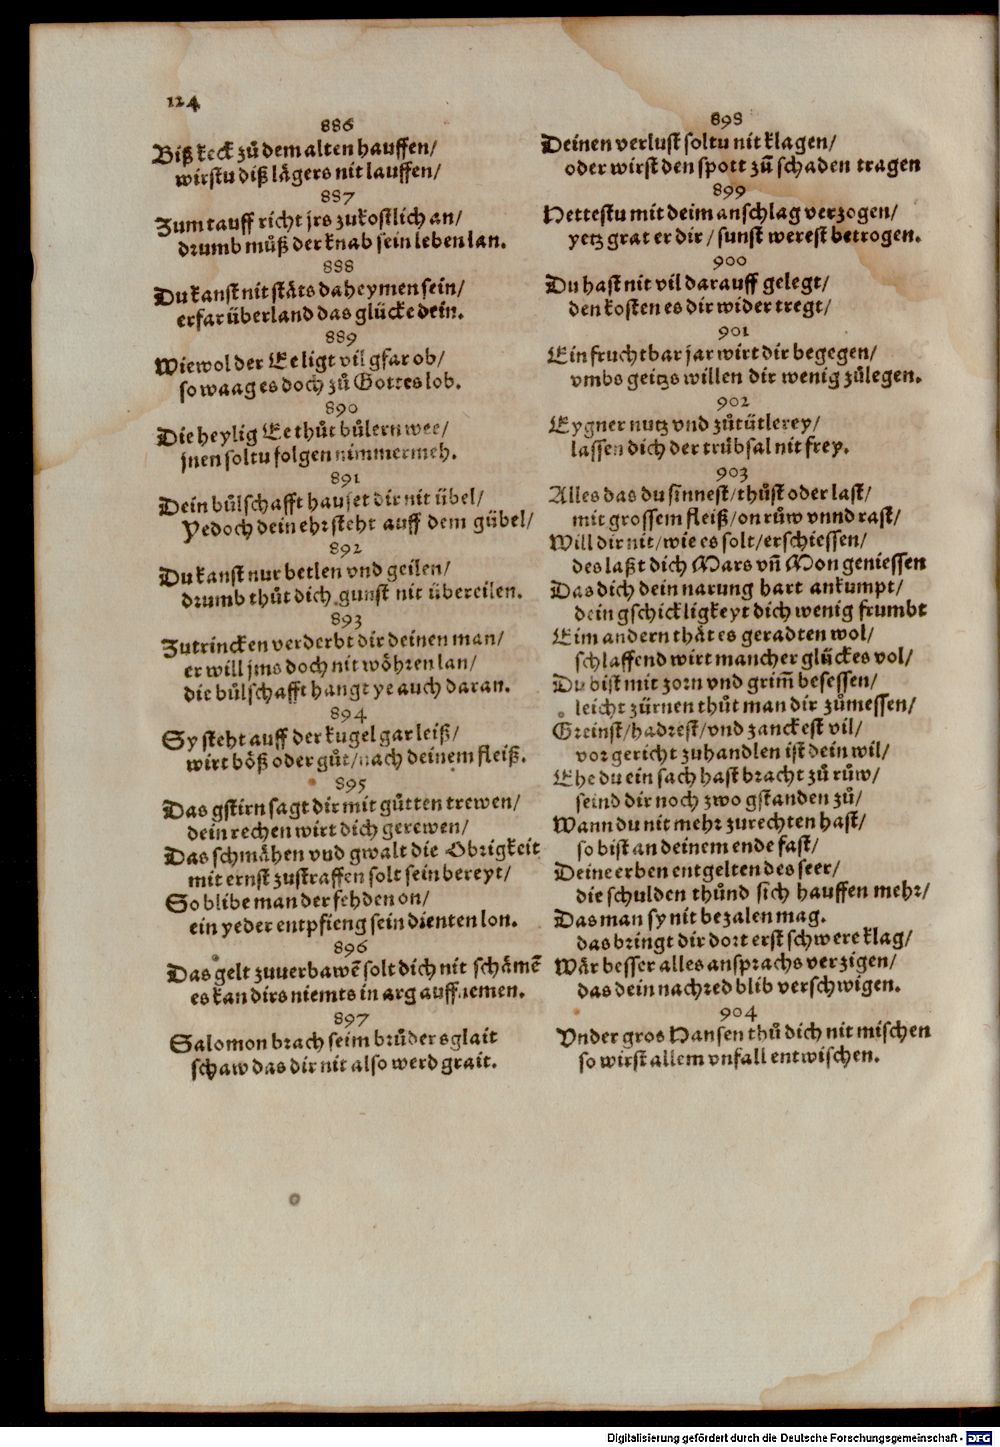 124
886
Biß keck zů dem alten hauffen/
wirstu diß lägers nit lauffen/
887
Zum tauff richt jrs zukostlich an/
drumb můß der knab sein leben lan.
888
Du kanst nit stäts daheymen sein/
erfar überland das glücke dein.
889
Wiewol der Ee ligt vil gfar ob/
so waag es doch zů Gottes lob.
890
Die heylig Ee thůt bůlern wee/
jnen soltu folgen nimmermeh.
891
Dein bůlschafft hauset dir nit übel/
Yedoch dein ehr steht auff dem gübel/
892
Du kanst nur betlen vnd geilen/
drumb thůt dich gunst nit übereilen.
893
Zutrincken verderbt dir deinen man/
er will jms doch nit wöhren lan/
die bůlschafft hangt ye auch daran.
894
Sy steht auff der kugel gar leiß/
wirt böß oder gůt/nach deinem fleiß.
895
Das gstirn sagt dir mit gůtten trewen/
dein rechen wirt dich gerewen/
Das schmähen vnd gwalt die Obrigkeit
mit ernst zustraffen solt sein bereyt/
So blibe man der fehden on/
ein yeder entpfieng sein dienten lon.
896
Das gelt zuuerbawē solt dich nit schämē
es kan dirs niemts in arg auffnemen.
897
Salomon brach seim brůders glait
schaw das dir nit also werd grait.
898
Deinen verlust soltu nit klagen/
oder wirst den spott zů schaden tragen
899
Hettestu mit deim anschlag verzogen/
yetz grat er dir / sunst werest betrogen.
900
Du hast nit vil darauff gelegt/
den kosten es dir wider tregt/
901
Ein fruchtbar jar wirt dir begegen/
vmbs geitzs willen dir wenig zůlegen.
902
Eygner nutz vnd zůtütlerey/
lassen dich der trübsal nit frey.
903
Alles das du sinnest/thůst oder last/
mit grossem fleiß/on růw vnnd rast/
Will dir nit/wie es solt/erschiessen/
des laßt dich Mars vñ Mon geniessen
Das dich dein narung hart ankumpt/
dein gschickligkeyt dich wenig frumbt
Eim andern thät es geradten wol/
schlaffend wirt mancher glückes vol/
Du bist mit zorn vnd grim̃ besessen/
leicht zürnen thůt man dir zůmessen/
Greinst/hadrest/vnd zanckest vil/
vor gericht zuhandlen ist dein wil/
Ehe du ein sach hast bracht zů růw/
seind dir noch zwo gstanden zů/
Wann du nit mehr zurechten hast/
so bist an deinem ende fast/
Deine erben entgelten des seer/
die schulden thůnd sich hauffen mehr/
Das man sy nit bezalen mag.
das bringt dir dort erst schwere klag/
Wär besser alles ansprachs verzigen/
das dein nachred blib verschwigen.
904
Vnder gros Hansen thů dich nit mischen
so wirst allem vnfall entwischen.
Digitalisierung gefördert durch die Deutsche Forschungsgemeinschaft - DFG